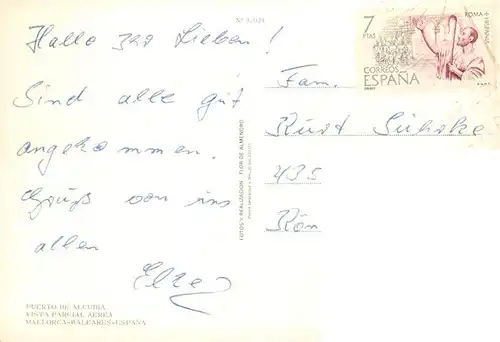 Hallo Ihr Lieben!
Sind alle gut
angekommen.
Gruß von uns
allen
Elke
PUERTO DE ALCUDIA
VISTA PARCIAL AEREA
MALLORCA-BALEARES-ESPAÑA
FOTOS Y REALIZACION FLOR DE ALMENDRO
7
PTAS
ROMA + HISPANIA
CORREOS
ESPAÑA
Fam.
Kurt
435